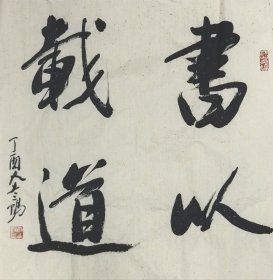 書以
載道
丁酉